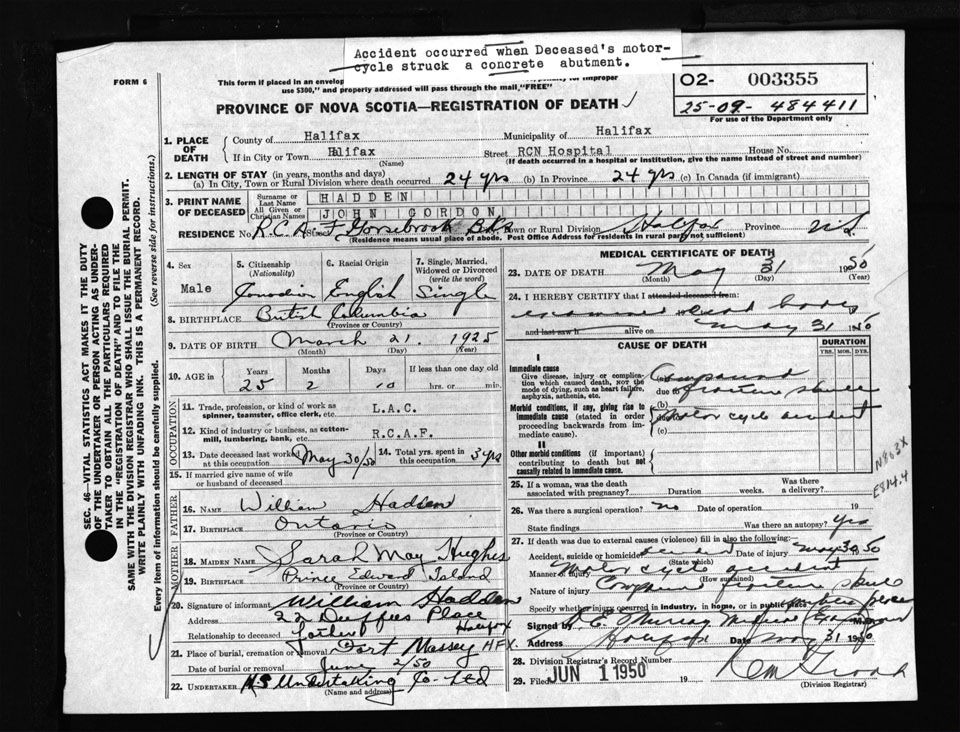 Accident occurred when Deceased's motor-
cycle struck a concrete abutment.
FORM 6
This form if placed in an envelop
use $300," and properly addressed will pass through the mail, "FREE"
02- 003355
25-09- 484411
For use of the Department only
PROVINCE OF NOVA SCOTIA—REGISTRATION OF DEATH
1. PLACE OF DEATH
County of Halifax Municipality of Halifax
If in City or Town Halifax Street RCN Hospital House No.
(Name) (If death occurred in a hospital or institution, give the name instead of street and number)
2. LENGTH OF STAY (in years, months and days)
(a) In City, Town or Rural Division where death occurred 24 yrs (b) In Province 24 yrs (c) In Canada (if immigrant)
3. PRINT NAME OF DECEASED
Surname or Last Name HADDEN
All Given or Christian Names JOHN GORDON
RESIDENCE No. R.C.A.F Gorsebrook Bks Town or Rural Division Halifax Province N.S
(Residence means usual place of abode. Post Office Address for residents in rural part not sufficient)
4. Sex Male
5. Citizenship (Nationality) Canadian
6. Racial Origin English
7. Single, Married, Widowed or Divorced (write the word) Single
8. BIRTHPLACE British Columbia
(Province or Country)
9. DATE OF BIRTH March 21. 1925
(Month) (Day) (Year)
10. AGE in Years Months Days If less than one day old
25 2 10 hrs. or min.
OCCUPATION
11. Trade, profession, or kind of work as spinner, teamster, office clerk, etc. L.A.C.
12. Kind of industry or business, as cotton-mill, lumbering, bank, etc. R.C.A.F.
13. Date deceased last worked at this occupation May 30/50
14. Total yrs. spent in this occupation 3 yrs
15. If married give name of wife or husband of deceased
FATHER
16. NAME William Hadden
17. BIRTHPLACE Ontario
(Province or Country)
MOTHER
18. MAIDEN NAME Sarah May Hughes
19. BIRTHPLACE Prince Edward Island
(Province or Country)
20. Signature of informant William Hadden
Address 22 Duffies Place Halifax
Relationship to deceased father
21. Place of burial, cremation or removal Fort Massey HFX.
Date of burial or removal June 2/50
22. UNDERTAKER NS Undertaking Co-Ltd
(Name and address)
MEDICAL CERTIFICATE OF DEATH
23. DATE OF DEATH May 31 1950
(Month) (Day) (Year)
24. I HEREBY CERTIFY that I attended deceased from:
examined dead body
and last saw h alive on May 31 1950
CAUSE OF DEATH
DURATION
YRS. MOS. DYS.
I
Immediate cause
Give disease, injury or complication which caused death, NOT the mode of dying, such as heart failure, asphyxia, asthenia, etc.
(a) Compound
due to fracture skull
Morbid conditions, if any, giving rise to immediate cause (stated in order proceeding backwards from immediate cause).
(b) Motor cycle accident
(c)
II
Other morbid conditions (if important) contributing to death but not causally related to immediate cause.
N803X
E814.4
25. If a woman, was the death associated with pregnancy? Duration weeks. Was there a delivery?
26. Was there a surgical operation? no Date of operation 19
State findings Was there an autopsy? Yes
27. If death was due to external causes (violence) fill in also the following:
Accident, suicide or homicide? accident Date of injury May 30, 50
(State which)
Manner of injury Motor cycle accident
(How sustained)
Nature of injury Compound fracture skull
Specify whether injury occurred in industry, in home, or in public place
Signed by
Address Halifax Date May 31 1950
28. Division Registrar's Record Number
29. Filed JUN 1 1950 19
(Division Registrar)
SEC. 46—VITAL STATISTICS ACT MAKES IT THE DUTY
OF THE UNDERTAKER OR PERSON ACTING AS UNDER-
TAKER TO OBTAIN ALL THE PARTICULARS REQUIRED
IN THE "REGISTRATION OF DEATH" AND TO FILE THE
SAME WITH THE DIVISION REGISTRAR WHO SHALL ISSUE THE BURIAL PERMIT.
WRITE PLAINLY WITH UNFADING INK. THIS IS A PERMANENT RECORD.
Every item of information should be carefully supplied. (See reverse side for instructions.)